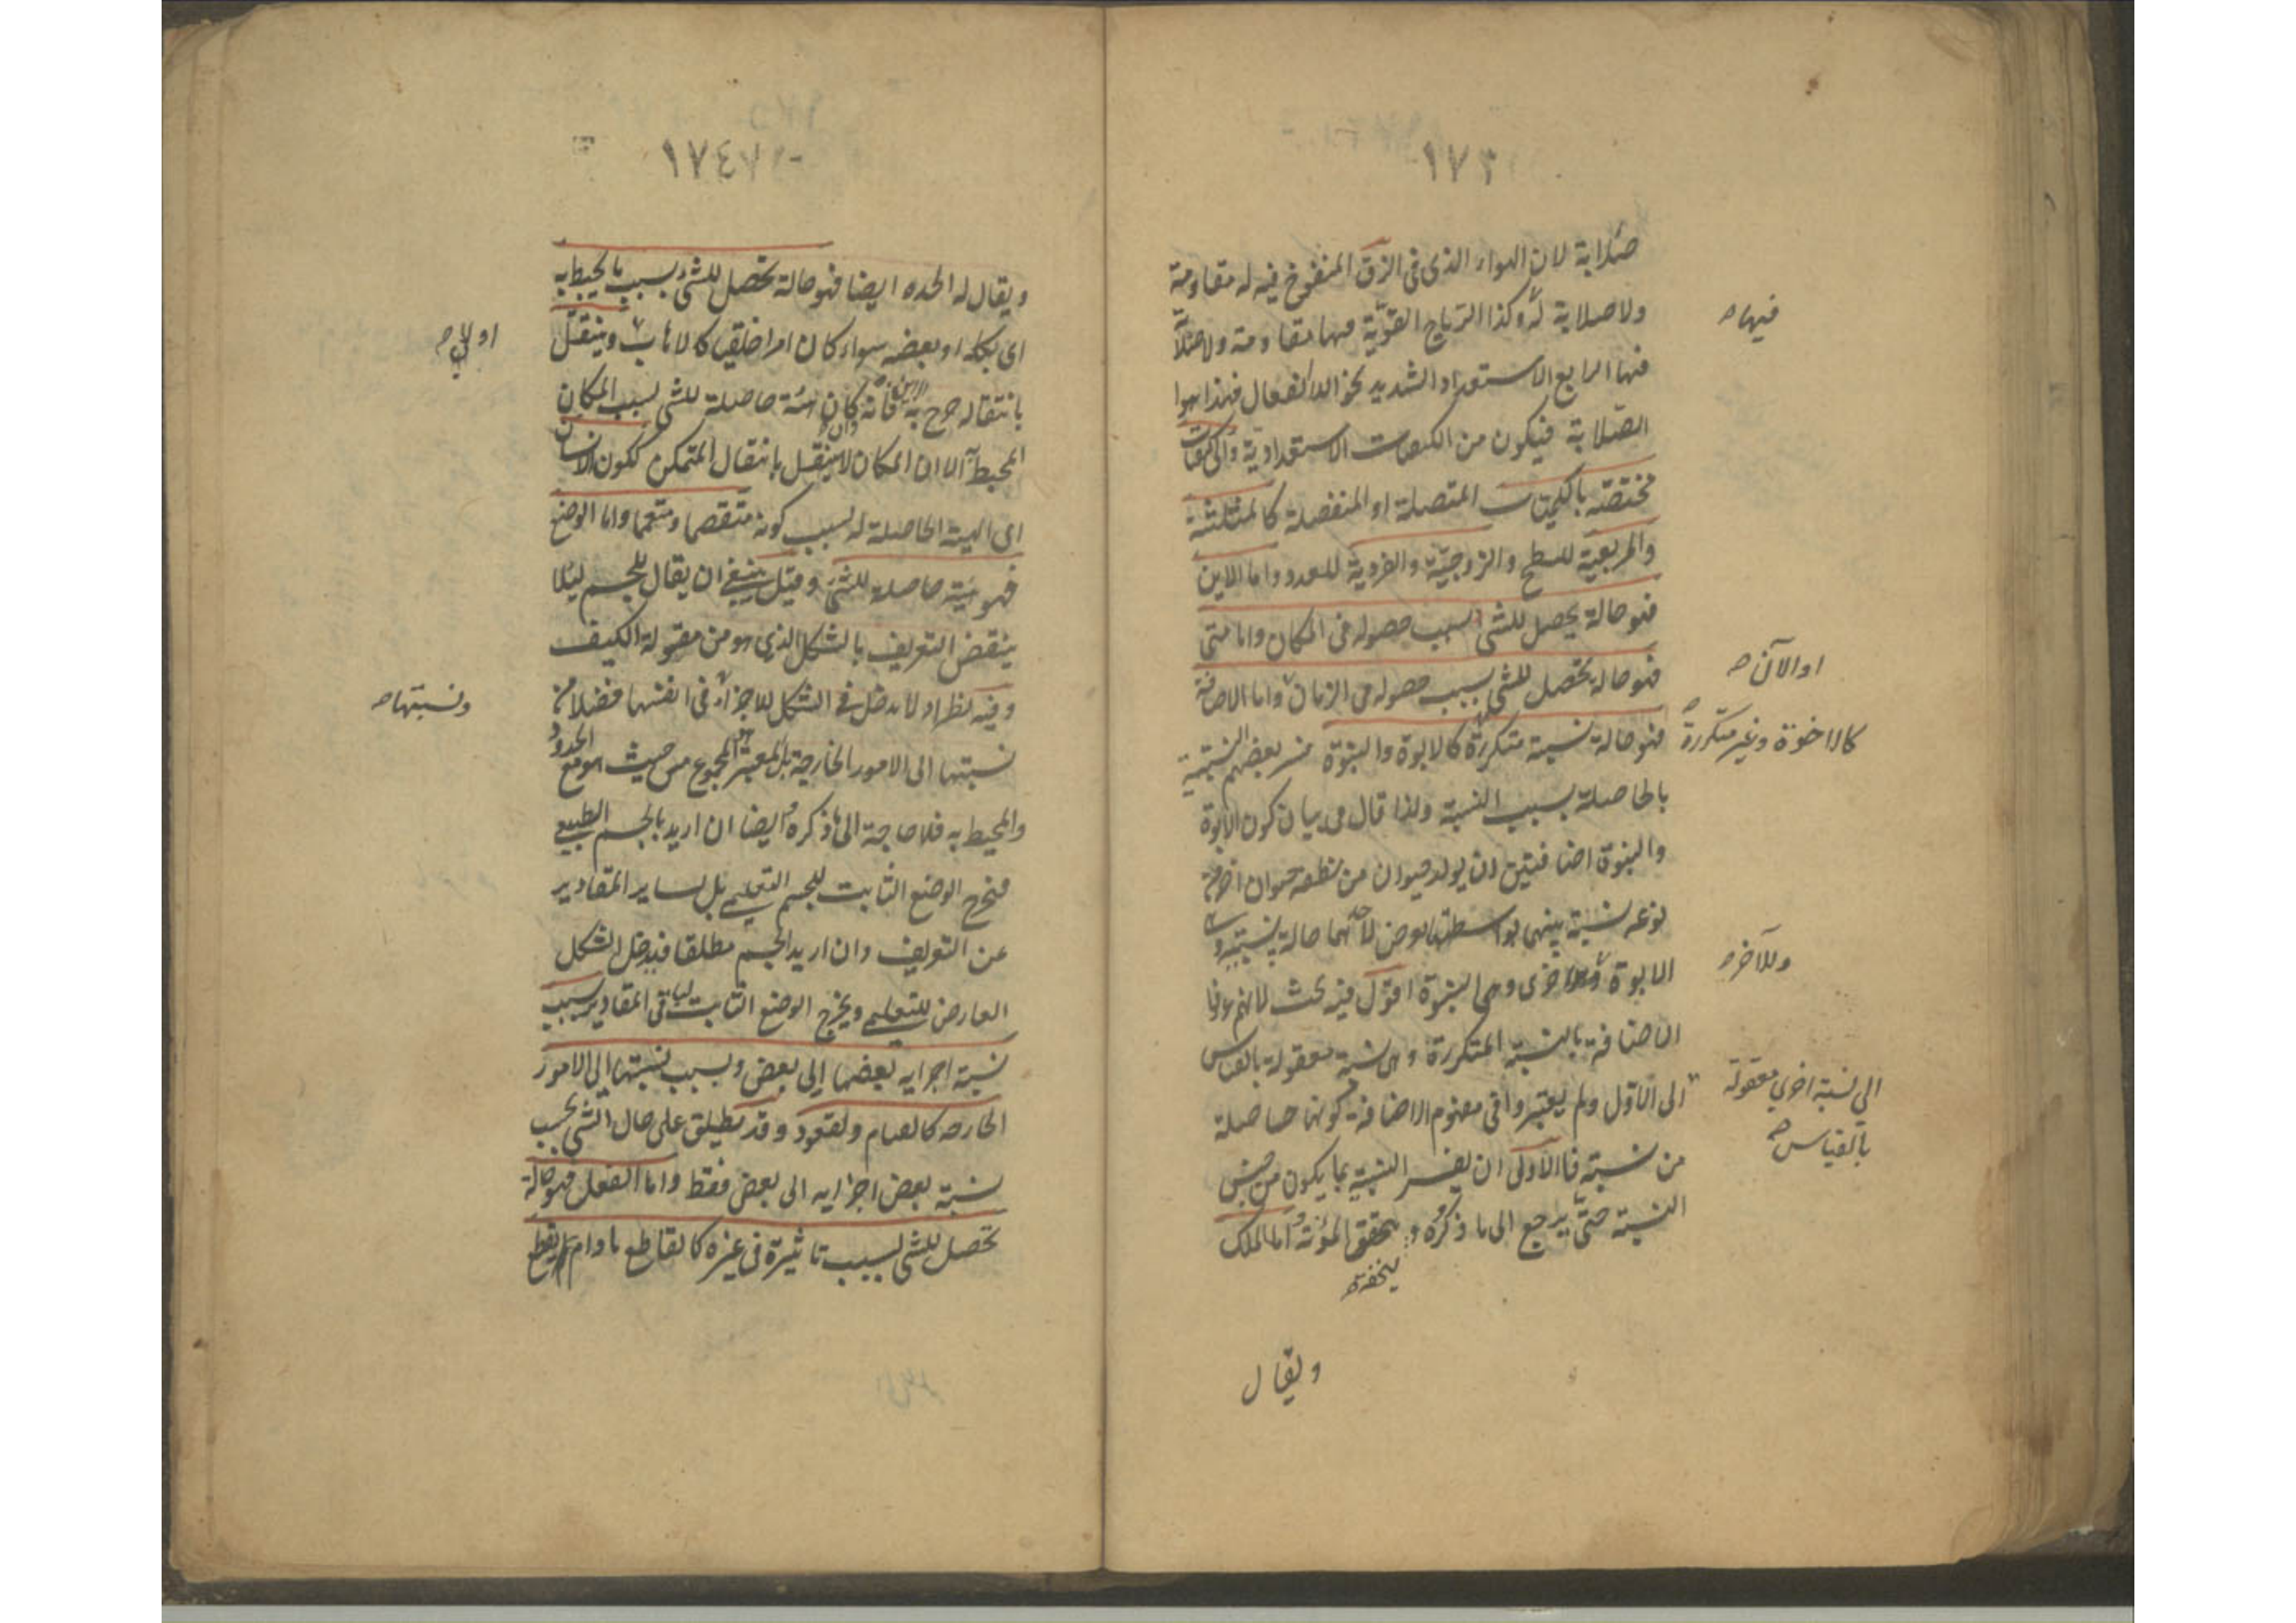 ١٧٣
صلابة لان الهواء الذى فى الزق المنفوخ فيه له مقاومة
ولا صلابة له وكذا الرياح القوية فيها مقاومة ولا صلابة
فيها الرابع الاستعداد الشديد نحو اللا انفعال فهذا هو
الصلابة فيكون من الكيفيات الاستعدادية والى كيفيات
مختصة بالكميات المتصلة او المنفصلة كالمثلثية
والمربعية للسطح والزوجية والفردية للعدد واما الاين
فهو حالة يحصل للشئ بسبب حصوله فى المكان واما متى
فهو حالة تحصل للشئ بسبب حصوله فى الزمان واما الاضافة
فهو حالة نسبية متكررة كالابوة والبنوة فسر بعضهم النسبية
بالحاصلة بسبب النسبة ولذا قال فى بيان كون الابوة
والبنوة اضافتين ان يولد حيوان من نطفة حيوان اخر من
نوعه نسبة بينهما بواسطتها يعرض لاحدهما حالة نسبية وهى
الابوة اخرى وهى البنوة اقول فيه بحث لانهم عرفوا
الاضافة بالنسبة المتكررة وهى نسبة معقولة بالقياس
الى الاول ولم يعتبروا فى مفهوم الاضافة كونها حاصلة
من نسبة فالاولى ان يفسر النسبية بما يكون من جنس
النسبة حتى يرجع الى ما ذكروه و يتحقق المؤنة اما الملك
ويقال
فيها صح
او الآن صح
كالاخوة وغير متكررة صح
وللآخر صح
الى نسبة اخرى معقولة
بالقياس صح
١٧٤
ويقال له الجده ايضا فهو حالة تحصل للشئ بسبب ما يحيط به
اى بكله او بعضه سواء كان امرا خلقيا كالاهاب وينتقل
بانتقاله خرج به الاين فانه كان هيئة حاصلة للشئ بسبب المكان
المحيط به الا ان المكان لا ينتقل بانتقال المتمكن ككون الانسان
اى الهيئة الحاصلة له بسبب كونه متقمصا ومتعمما واما الوضع
فهو هيئة حاصلة للشئ وقيل ينبغى ان يقال للجسم ليلا
ينتقض التعريف بالشكل الذى هو من مقولة الكيف
وفيه نظر اذ لا مدخل فى الشكل للاجزاء فى انفسها فضلا من
نسبتها الى الامور الخارجة بل المعتبر المجموع من حيث هو مع الحدود
والمحيط به فلا حاجة الى ما ذكره وايضا ان اريد بالجسم الطبيعى
فيخرج الوضع الثابت للجسم التعليمى بل لساير المقادير
عن التعريف وان اريد الجسم مطلقا فيدخل الشكل
العارض للتعليمى ويخرج الوضع الثابت لباقى المقادير بسبب
نسبة اجزايه بعضها الى بعض وبسبب نسبتها الى الامور
الخارجه كالقيام والقعود وقد يطلق على حال الشئ بحسب
نسبة بعض اجزايه الى بعض فقط واما الفعل فهو حالة
تحصل للشئ بسبب تاثيره فى غيره كالقاطع ما دام يقطع
او لا صح
ونسبتها صح